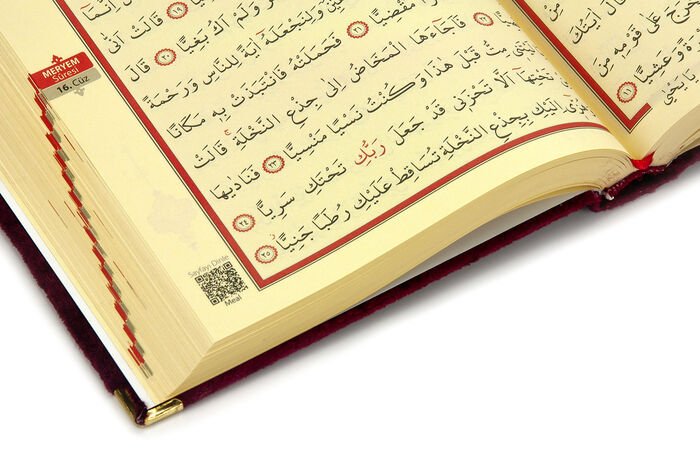 اِنَّمَا
١٩ قَالَتْ اَنّٰى
وَلَمْ اَكُ بَغِيًّا ٢٠ قَالَ
وَلِنَجْعَلَهُٓ اٰيَةً لِلنَّاسِ وَرَحْمَةً
مَقْضِيًّا ٢١ فَحَمَلَتْهُ فَانْتَبَذَتْ بِهٖ مَكَانًا
٢٢ فَاَجَٓاءَهَا الْمَخَاضُ اِلٰى جِذْعِ النَّخْلَةِ قَالَتْ
مِتُّ قَبْلَ هٰذَا وَكُنْتُ نَسْيًا مَنْسِيًّا ٢٣ فَنَادٰيهَا
تَحْتِهَٓا اَلَّا تَحْزَنٖي قَدْ جَعَلَ رَبُّكِ تَحْتَكِ سَرِيًّا ٢٤
اِلَيْكِ بِجِذْعِ النَّخْلَةِ تُسَاقِطْ عَلَيْكِ رُطَبًا جَنِيًّا ٢٥
MERYEM
Sûresi
16. Cüz
Sayfayı Dinle
Meal
قَالَ اٰيَتُكَ
عَلٰى قَوْمِهٖ مِنَ
وَعَشِيًّا ١١